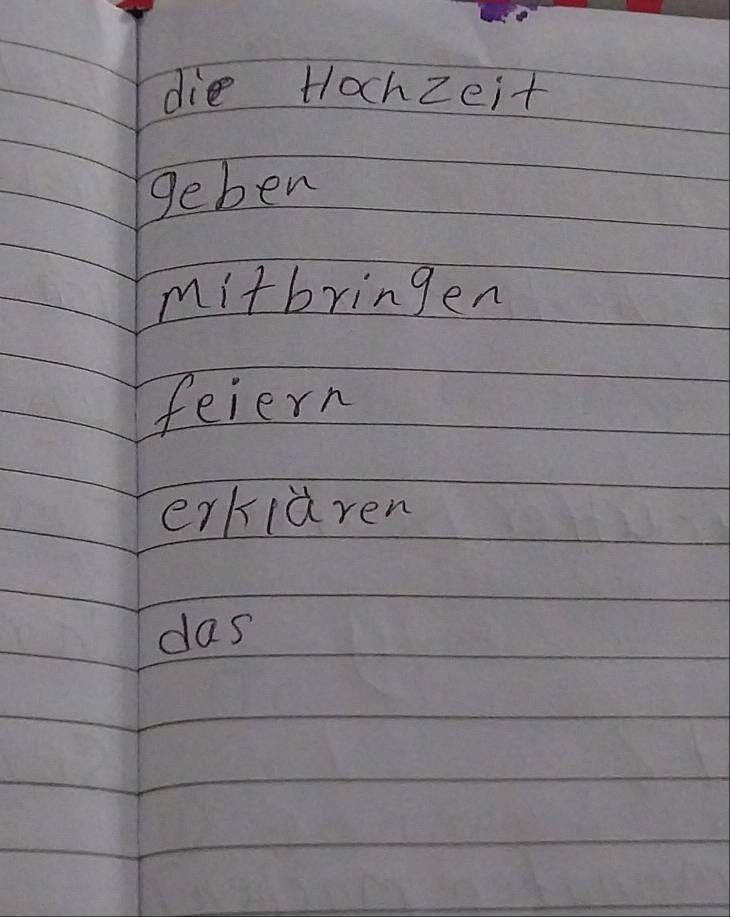 die Hochzeit
geben
mitbringen
feiern
erklären
das